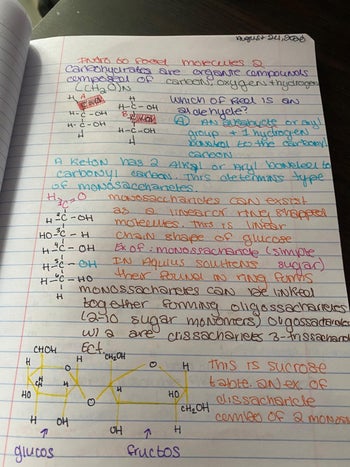 august 24, 2020
Intro to food molecules 2
Carbohydrates are organic compounds
composed of carbon, oxygen + hydrogen
(CH2O)N
H A
H-C-OH
H-C-OH
H
H
H-C-OH
B
H-C-OH
H
which of Red is an
aldehyde?
A) An aldehyde or aryl
group + 1 hydrogen
bonded to the carbonyl
carbon
A Keton has 2 Alkyl or Aryl bonded to
carbonyl carbon. This determins type
of monosaccharides.
H 1C=O
H-2C-OH
HO-3C-H
H-4C-OH
H-5C-OH
H-6C-HO
H
monosaccharides can exsist
as a linear or ring shapped
molecules. This is linear
chain shape of glucose
Ex of: monosaccharide (simple
IN Aquius solutions sugar)
their found in ring forms
monossacharides can be linked
together forming oligossacharides
(2-10 sugar monomers) Oligossacharides
w/ 2 are dissacharides 3-trissacharides
Ect.
CHOH
H
O
H
H
HO
H
OH
O
CH2OH
O
H
H
HO
CH2OH
OH
H
This is sucrose
table. an ex. of
dissacharide
glucos
fructos